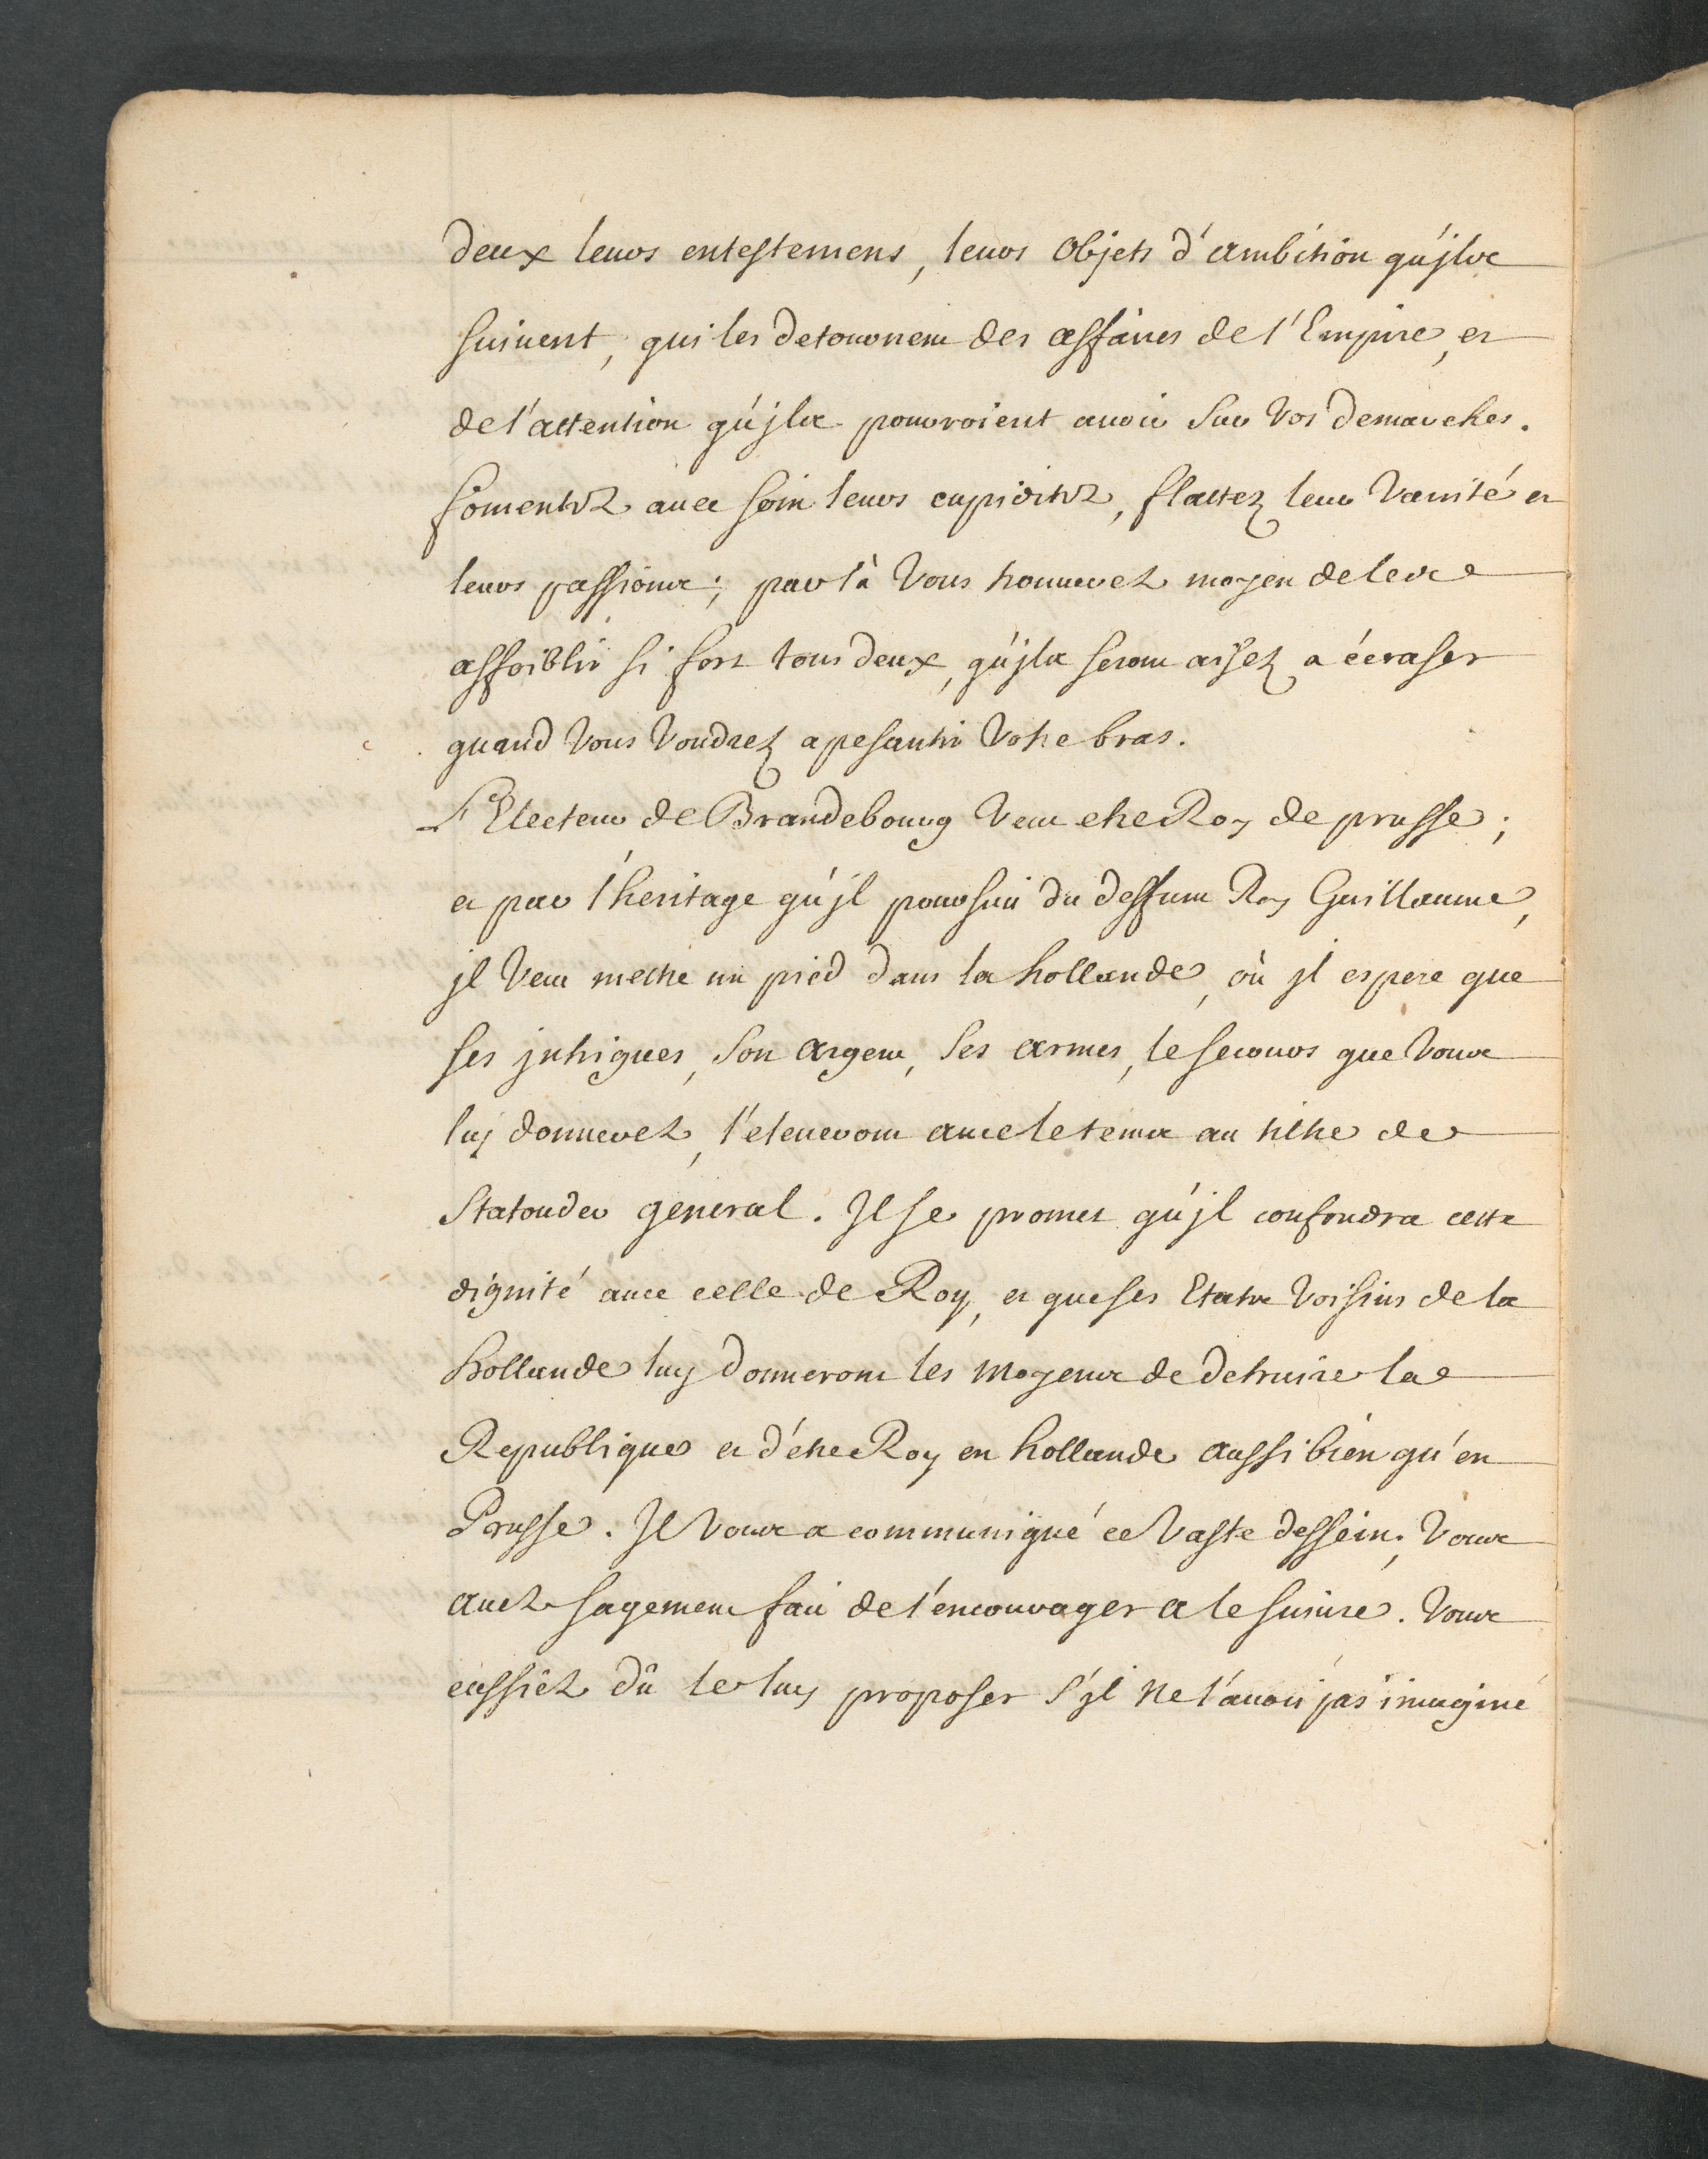 deux leurs entestemens, leurs objets d'ambition qu'jls
suivent, qui les detournent des affaires de l'Empire, et
de l'attention qu'jls pourroient avoir sur vos demarches.
fomentez avec soin leurs cupiditez, flattez leur vanité et
leurs passions; par là vous trouverez moyen de les
affoiblir si fort tous deux, qu'jls seront aisez a écraser
quand vous voudrez apesantir votre bras.
L'Electeur de Brandebourg veut etre Roy de prusse;
et par l'heritage qu'jl poursuit du deffunt Roy Guillaume,
jl veut mettre un pied dans la hollande, où jl espere que
ses jntrigues, son argent, ses armes, le secours que vous
luy donnerez, l'eleveront avec le tems au titre de
Statouder general. Jl se promet qu'jl confondra cette
dignité avec celle de Roy, et que ses Etats voisins de la
hollande luy donneront les moyens de detruire la
Republique et d'etre Roy en hollande aussi bien qu'en
Prusse. Jl vous a communiqué ce vaste dessein; vous
avez sagement fait de l'encourager a le suivre. vous
eussiez dû le luy proposer s'jl ne l'avoit pas imaginé